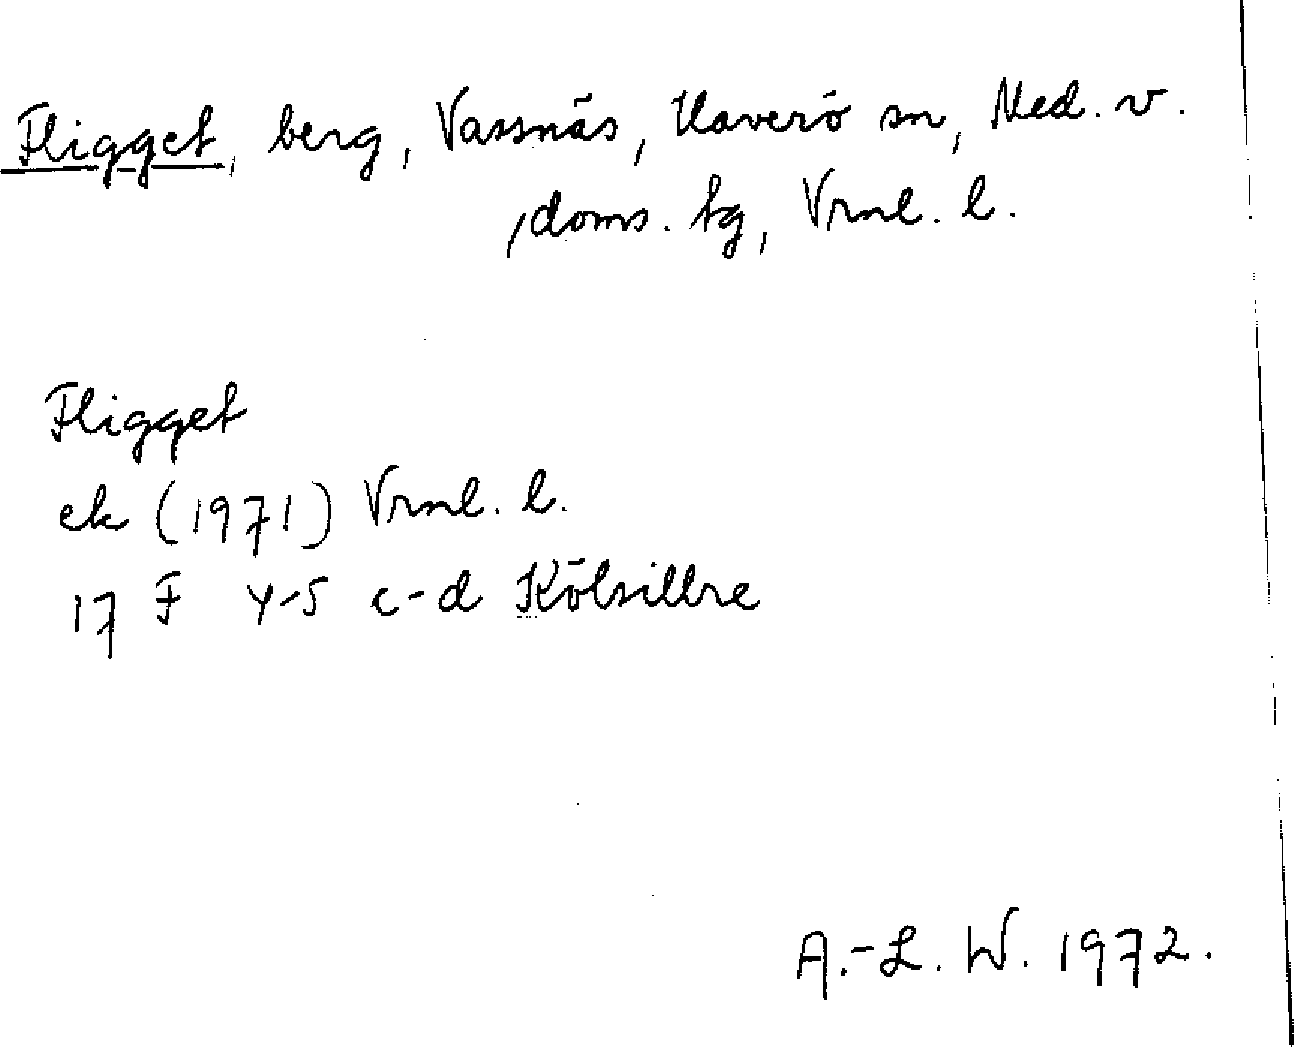 Fligget, berg, Vassnäs, Haverö sn, Med. v.
doms. tg, Vrnl. l.
Fligget
ek (1971) Vrnl. l.
17 F Y-5 c-d Kölsillre
A.-L. W. 1972.